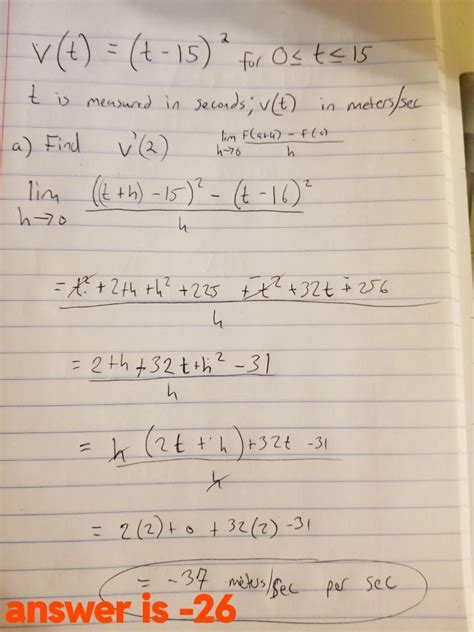 v(t) = (t - 15)² for 0 ≤ t ≤ 15
t is measured in seconds; v(t) in meters/sec
a) Find v'(2) lim h→0 F(a+h) - f(a) / h
lim h→0 ((t+h) - 15)² - (t - 16)² / h
= t² + 2th + h² + 225 - t² + 32t - 256 / h
= 2th + 32t + h² - 31 / h
= h (2t + h) + 32t - 31 / h
= 2(2) + 0 + 32(2) - 31
= -37 meters/sec per sec
answer is -26